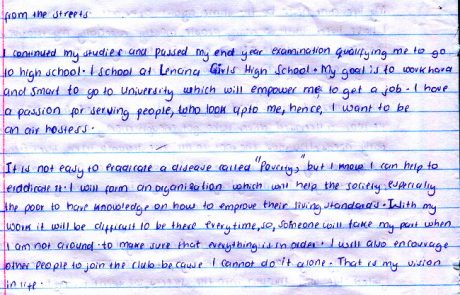 from the streets
I continued my studies and passed my end year examination qualifying me to go
to high school. I school at Lenana Girls High School. My goal is to work hard
and smart to go to University which will empower me to get a job. I have
a passion for serving people, who look upto me, hence, I want to be
an air hostess.
It is not easy to eradicate a disease called "Poverty," but I know I can help to
eriddicate it. I will form an organization which will help the society, especially
the poor to have knowledge on how to emprove their living standards. With my
work it will be difficult to be there everytime, so, someone will take my part when
I am not around to make sure that everything is in order. I will also encourage
other people to join the club because I cannot do it alone. That is my vision
in life.